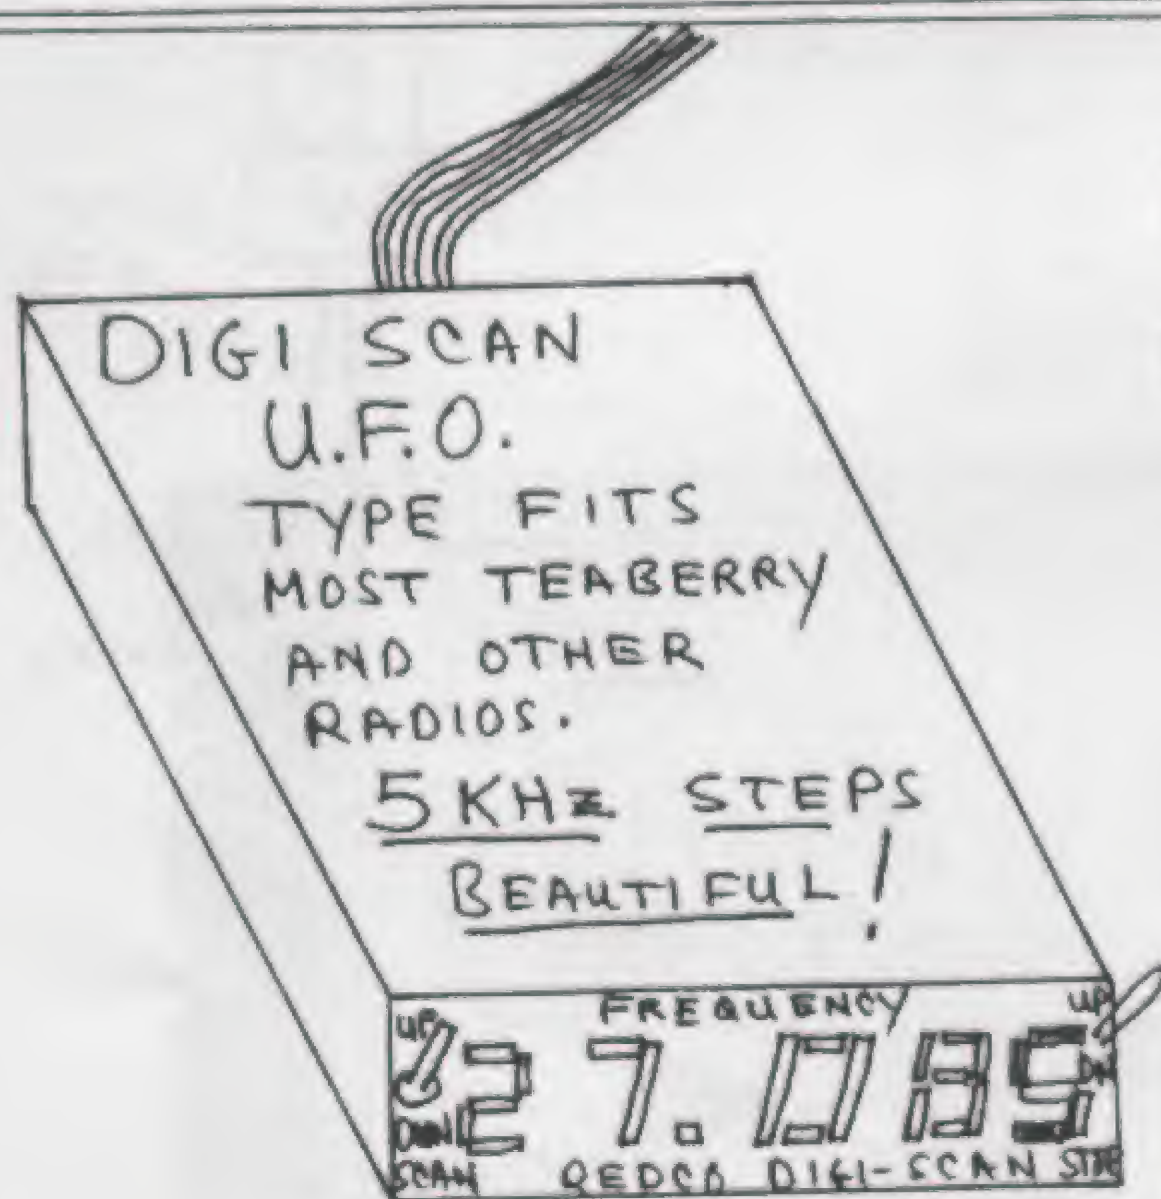 DIGI SCAN
U.F.O.
TYPE FITS
MOST TEABERRY
AND OTHER
RADIOS.
5 KHz STEPS
BEAUTIFUL!
FREQUENCY
UP
UP
27.085
DN
DWN
SCAN
DIGI-SCAN